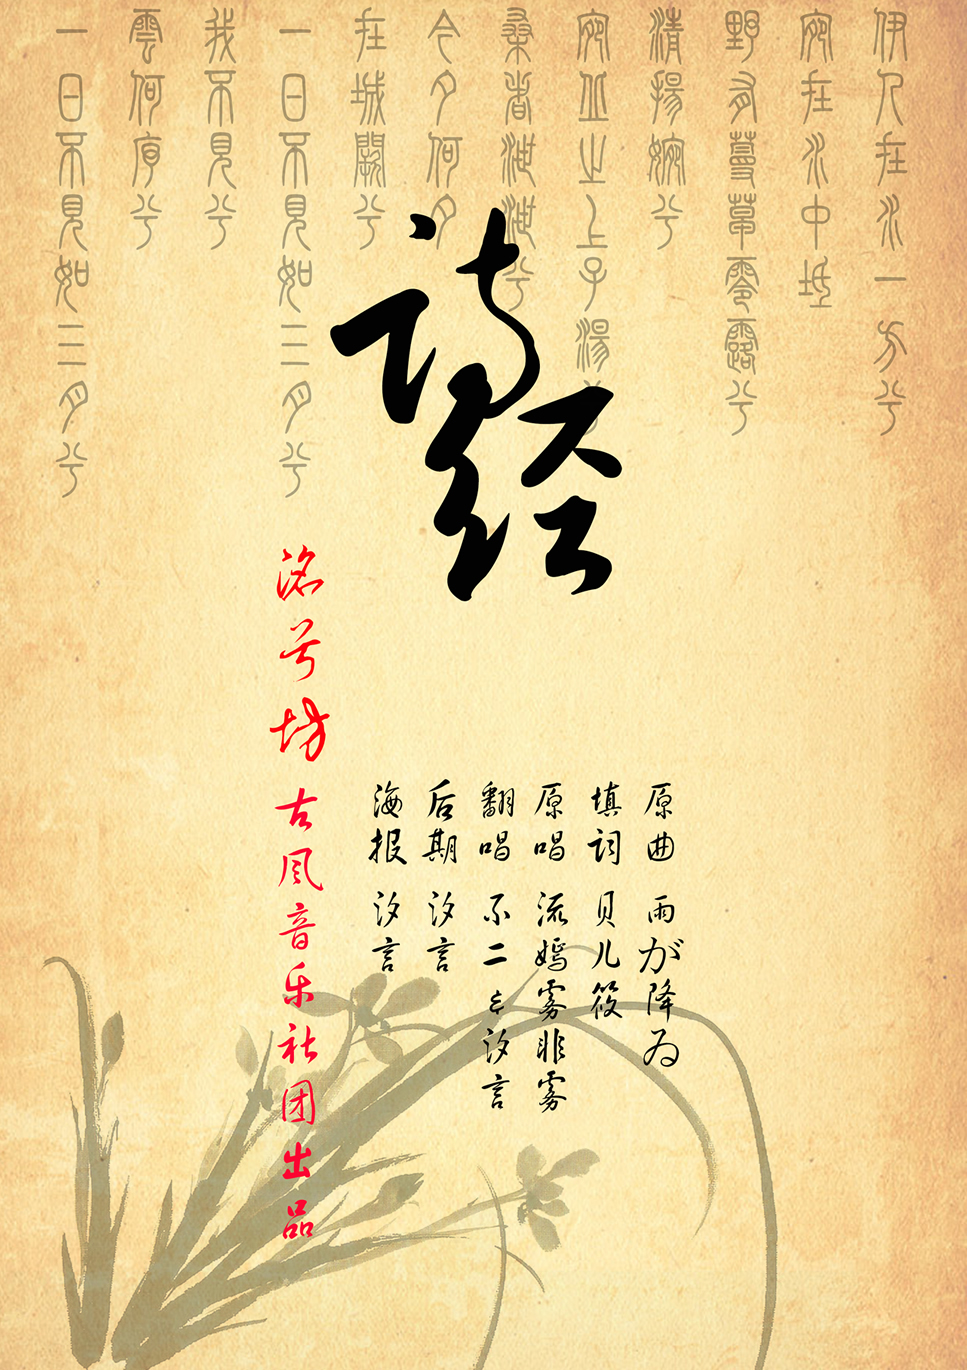 伊人在水一方兮
宛在水中坻
野有蔓草零露兮
清揚婉兮
宛丘止上子湯兮
桑者泄泄兮
今夕何夕
在城闕兮
一日不見如三月兮
我不見兮
雲何兮
一日不見如三月兮
诗经
原曲 雨が降る
填词 贝儿筱
原唱 流嫣雾非雾
翻唱 不二&汐言
后期 汐言
海报 汐言
洺兮坊古风音乐社团出品